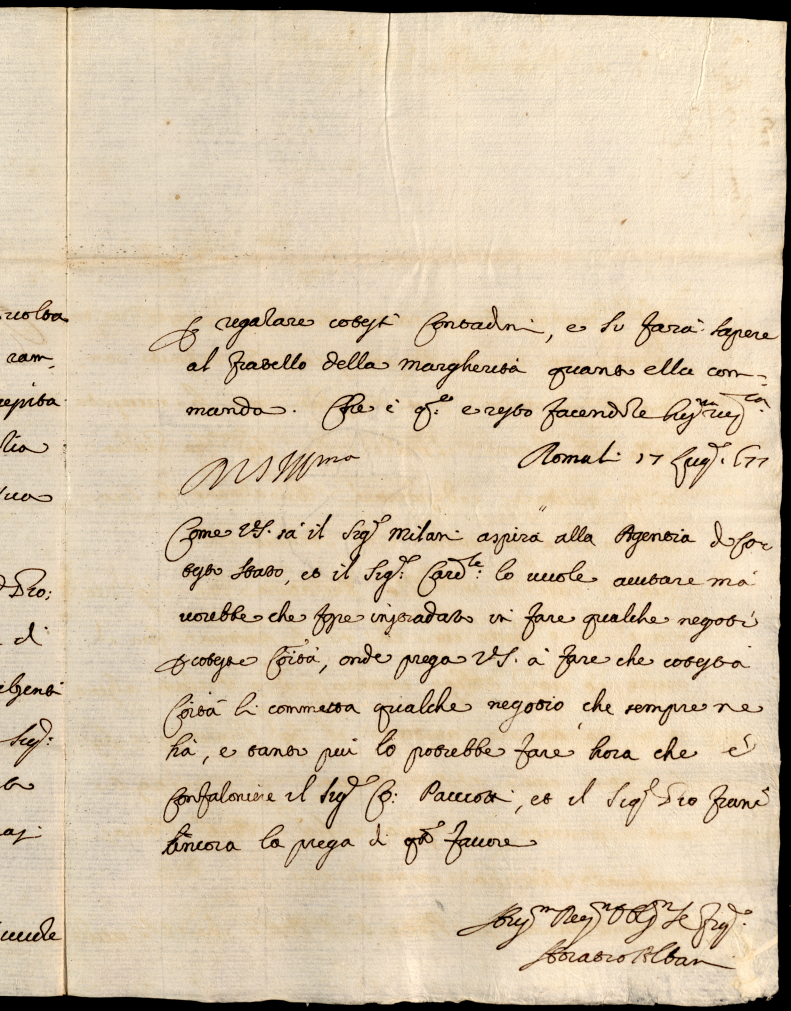 ruolta
ram-
repita
lia
sua
d Dio:
di
elgenti
Sig.r:
la
aj:
uuole
P regalare cotesti Contadini, e si farà sapere
al fratello della margherita quanto ella com-
manda. Che è q.to e resto facendole
Roma li 17 Lug.o 677
Come VS. sà il Sig.r Milani aspira alla Agentia di Co-
testo stato, et il Sig.r: Card.le: lo uuole aiutare mà
uorebbe che fosse instradato in fare qualche negoti
P coteste Città, onde prega VS. à fare che cotesta
Città li commetta qualche negotio che sempre ne
hà, e tanto più lo potrebbe fare hora che è
Confaloniere il Sig.r Co: Pacciotti, et il Sig.r Dio Franc.o
ancora la prega di q.to fauore
Horatio Albani